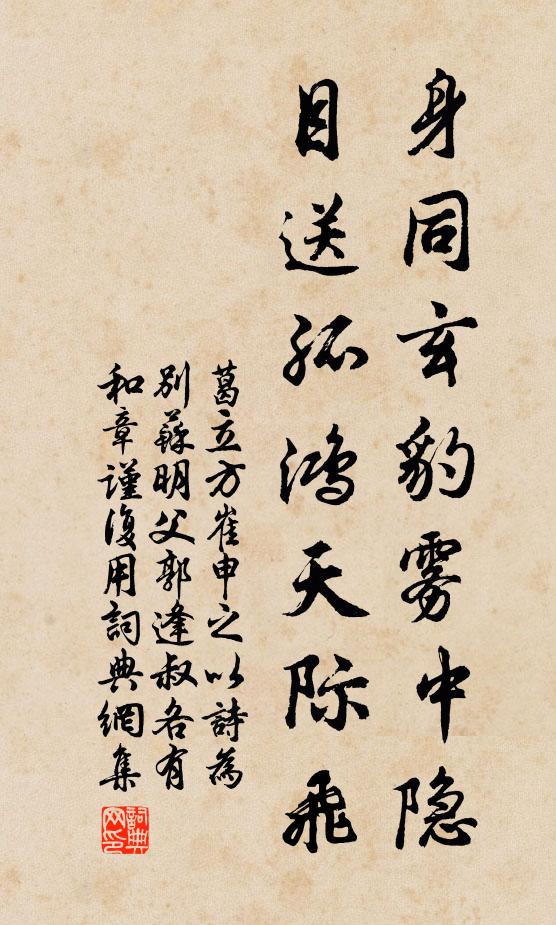 身同玄豹雾中隐
目送孤鸿天际飞
葛立方崔申之以詩為
別蘇明父郭逢叔各有
和章謹復用詞典網集
詞典网印